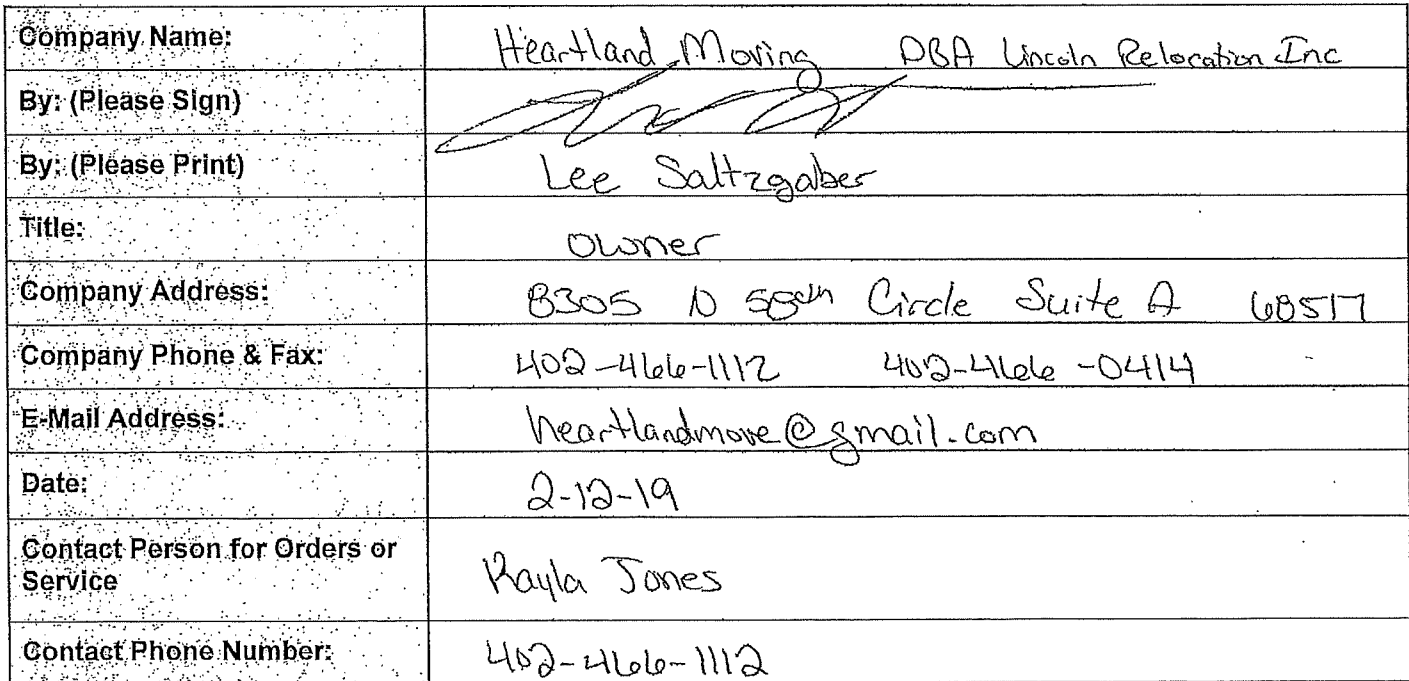 Company Name: Heartland Moving DBA Lincoln Relocation Inc
By: (Please Sign)
By: (Please Print) Lee Saltzgaber
Title: Owner
Company Address: 8305 N 58th Circle Suite A 68517
Company Phone & Fax: 402-466-1112 402-466-0414
E-Mail Address: heartlandmove@gmail.com
Date: 2-12-19
Contact Person for Orders or
Service Kayla Jones
Contact Phone Number: 402-466-1112